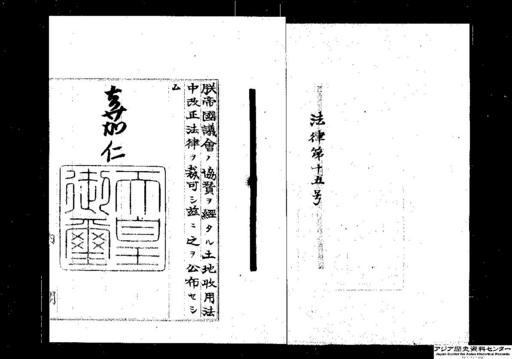 法律第十五号
朕帝國議會ノ協賛ヲ經タル土地收用法
中改正法律ヲ裁可シ茲ニ之ヲ公布セシ
ム
嘉仁
天皇
御璽
内
閣
アジア歴史資料センター
Japan Center for Asian Historical Records